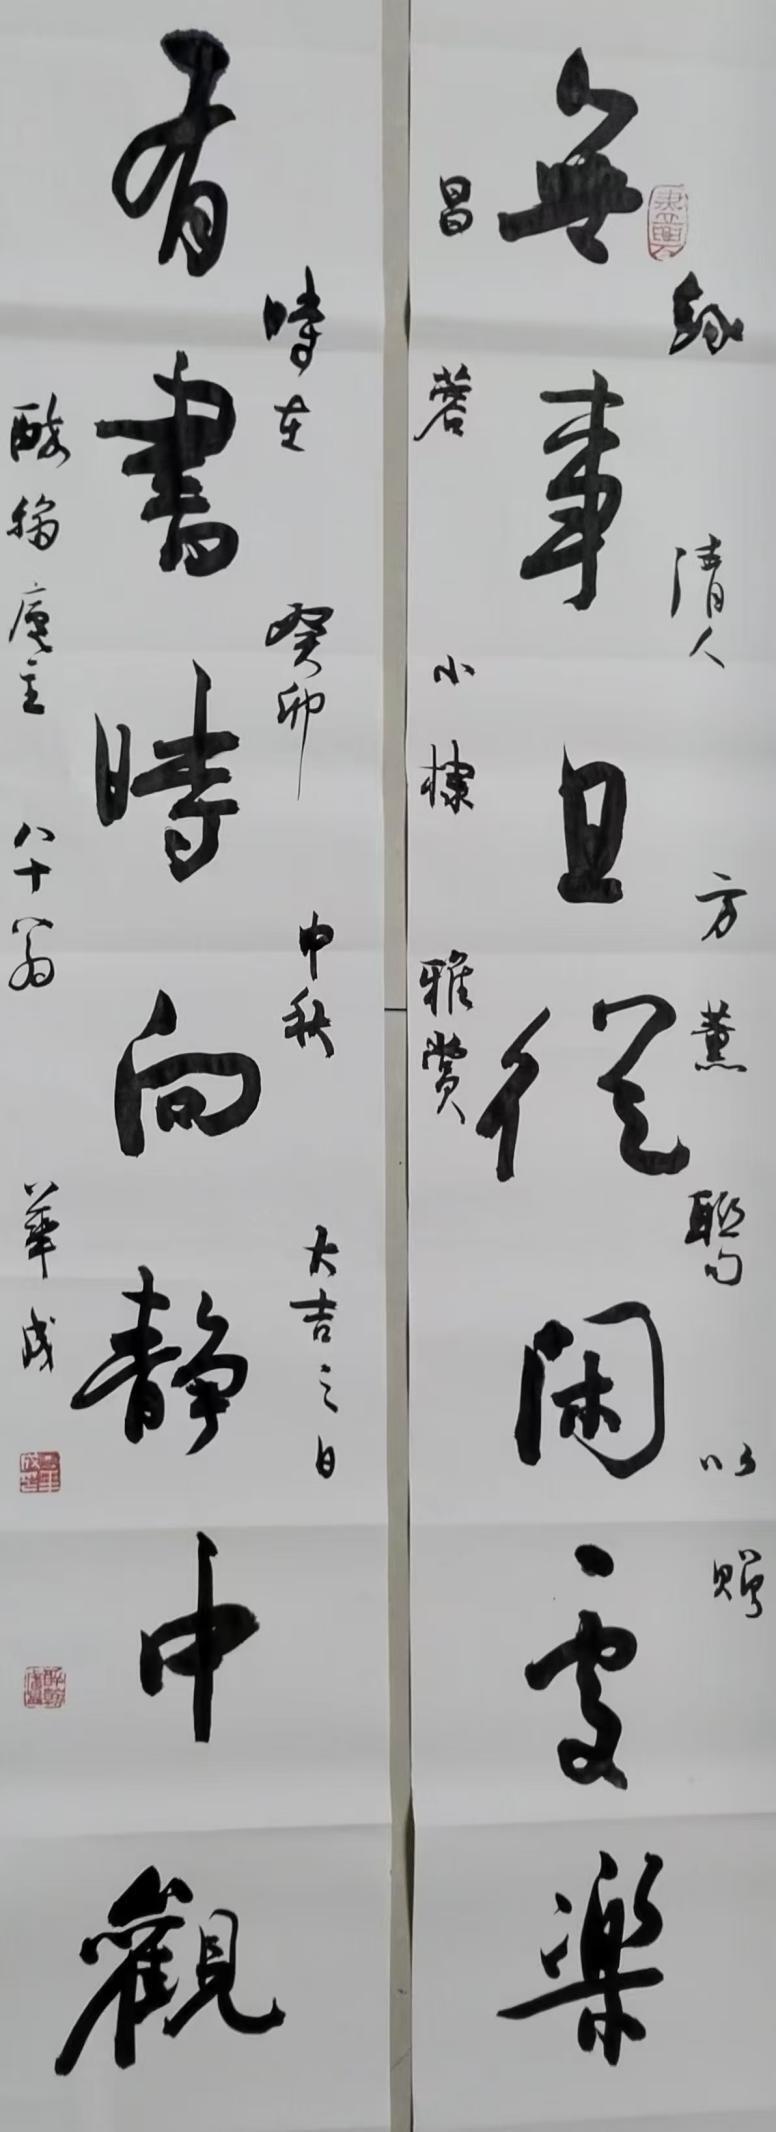 無事且從閑處樂
錄清人方薰聯句以贈
昌蓉小棣雅賞
有書時向靜中觀
時在癸卯中秋大吉之日
酸翁庵主八十翁華成